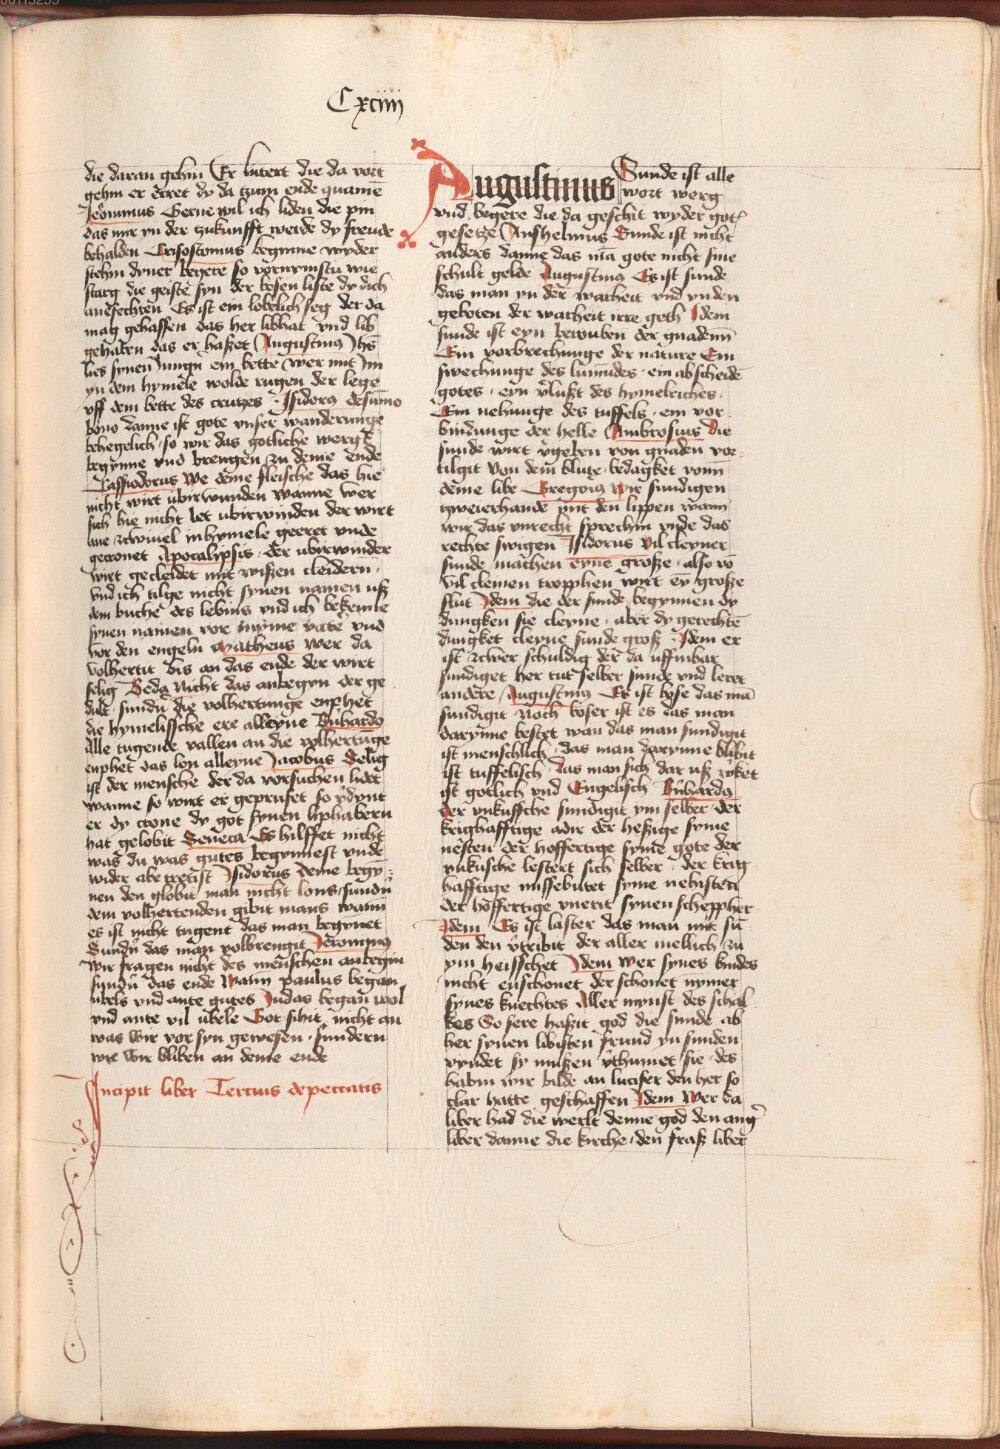 Cxciiij
die daran gehin Er lutert die da vort
gehin er erret dy da tzum ende quame
Jeronimus Gerne wil ich liden die pin
das mir yn der zukunfft werde dy freude
behalden Crisostomus beginne wyder
stehin dyner begere so vornymstu wie
starg die geiste syn der bosen liste dy dich
anefechten Es ist ein lobelich seg der da
mag geschaffen das her libhat vnd lib
gehaben das er haßet Augustinus Ihs
lies synen iungn ein bette wer mit Im
yn dem hymele wolde rugen der lege
vff dem bette des crutzes Isidorus de summo
bono Danne ist gote vnser wanderunge
behegelich so wir das gotliche wergk
begynne vnd brengen zu deme ende
Cassiodorus We deme fleische das hie
nicht wirt vbirwunden wanne wer
sich hie nicht let vbirwinden der wirt
ane zcwiuel in hymele geeret vnde
gecronet Apocalypsis der vbirwinder
wirt gecleidet mit wißen cleidern
vnd ich tilge nicht synen namen uß
dem buche des lebins vnd ich bekenne
synen namen vor myme vater vnd
vor den engeln Matheus wer da
volhertit bis an das ende der wirt
selig Beda Nicht das anbegyn der ge
dult sundern die volhertunge enphet
die hymelissche ere alleyne Bernhardus
Alle tugende vallen an die volhertunge
enphet das lon alleyne Jacobus Selig
ist der mensche der da vorsuchen lidet
wanne so wirt er geprufet so vordynt
er dy crone dy got synen liphabern
hat gelobit Seneca Es hilffet nicht
was du was gutes begynnest vnde
wider abe tretist Isidorus Deme begyn
nen den globit man nicht lons sundern
dem volhertenden gibit mans wann
es ist nicht tugent das man begynet
Sundern das man volbrengit Jeronimus
wir fragen nicht des menschen anbegin
sundern das ende Wann paulus began
vbels vnd ante gutes Judas began wol
vnd ante vil vbele Got sihit nicht an
was wir vor syn gewesen sundern
wie wir bliben an deme ende
Incipit liber Tercius de peccatis
Augustinus Sunde ist alle
wort werg
vnd begere die da geschit wyder gotis
gesetze Anshelmus Sunde ist nicht
anders danne das man gote nicht sine
schult gelde Augustinus Es ist sunde
das man yn der warheit vnd yn den
geboten der warheit irre geth Idem
sunde ist eyn berouben der gnaden
Ein vorbrechunge der nature Ein
swechunge des lumudes ein abscheiden
gotes eyn vorlust des hymelriches
Ein nehunge des tuffels ein vor
bindunge der helle Ambrosius Die
sunde wirt vorgeben von gnaden vor
tilgit von dem blute bedagket vonn
deme libe Gregorius Wir sundigen
tzweierhande mit den lippen wann
wir das vnrecht sprechin vnde das
rechte swigen Isidorus Vil cleyner
sunde machen eyne große also von
vil cleinen tropphen wirt ey große
flut Idem die der sunde begynnen dy
dungken sie cleyne aber dy gerechten
dungket cleyne sunde groß Idem er
ist zcwer schuldig der da uffinbar
sundiget her tut selber sunde vnd leret
andere Augustinus Es ist bose das man
sundigit Noch boser ist es das man
darynne bestet wan das man sundigit
ist menschlich das man darynne blibit
ist tuffelisch das man sich dar uß zcuket
ist gotlich vnd Engelisch Bernhardus
Der vnkussche sundigit ym selber der
krighafftige adir der heßige syme
nesten der hoffertige syme gote der
vnkusche lestert sich selber der krig
hafftige missebutet syme nehisten
der hoffertige vneret synen schepher
Idem Es ist laster das man mit sun
den den vertribit der aller mellich zu
ym heisschet Idem Wer synes kindes
nicht enschonet der schonet nymer
synes knechtes Aller mynst des schal
kes So sere haßit god die sunde ab
her synen libisten frund yn sunden
vyndet sy mußen verthumet sie des
habin wir bilde an lucifer den her so
clar hatte geschaffen Idem Wer da
liber had die werlt denne god den ang
liber danne die kirche den fraß liber